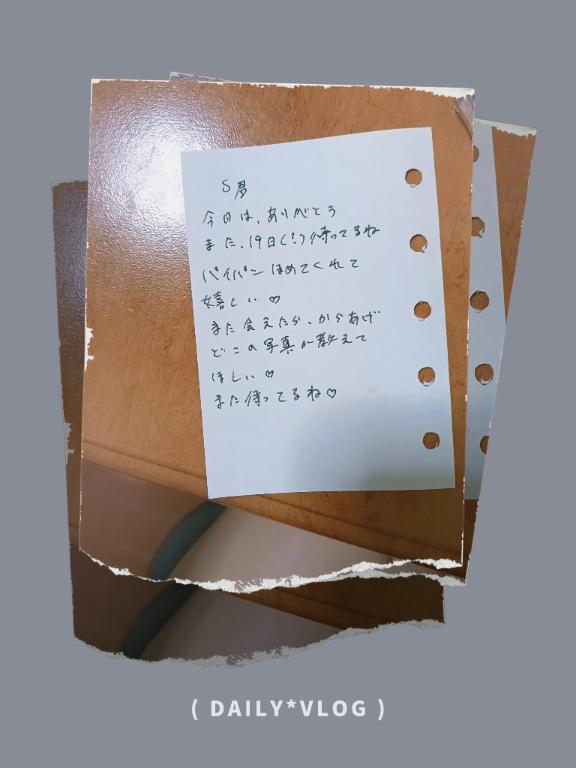 S君
今日は、ありがとう
また、19日(!)待ってるね
パイパンほめてくれて
嬉しい♡
また会えたら、からあげ
どこの写真か教えて
ほしい♡
また待ってるね♡
( DAILY*VLOG )